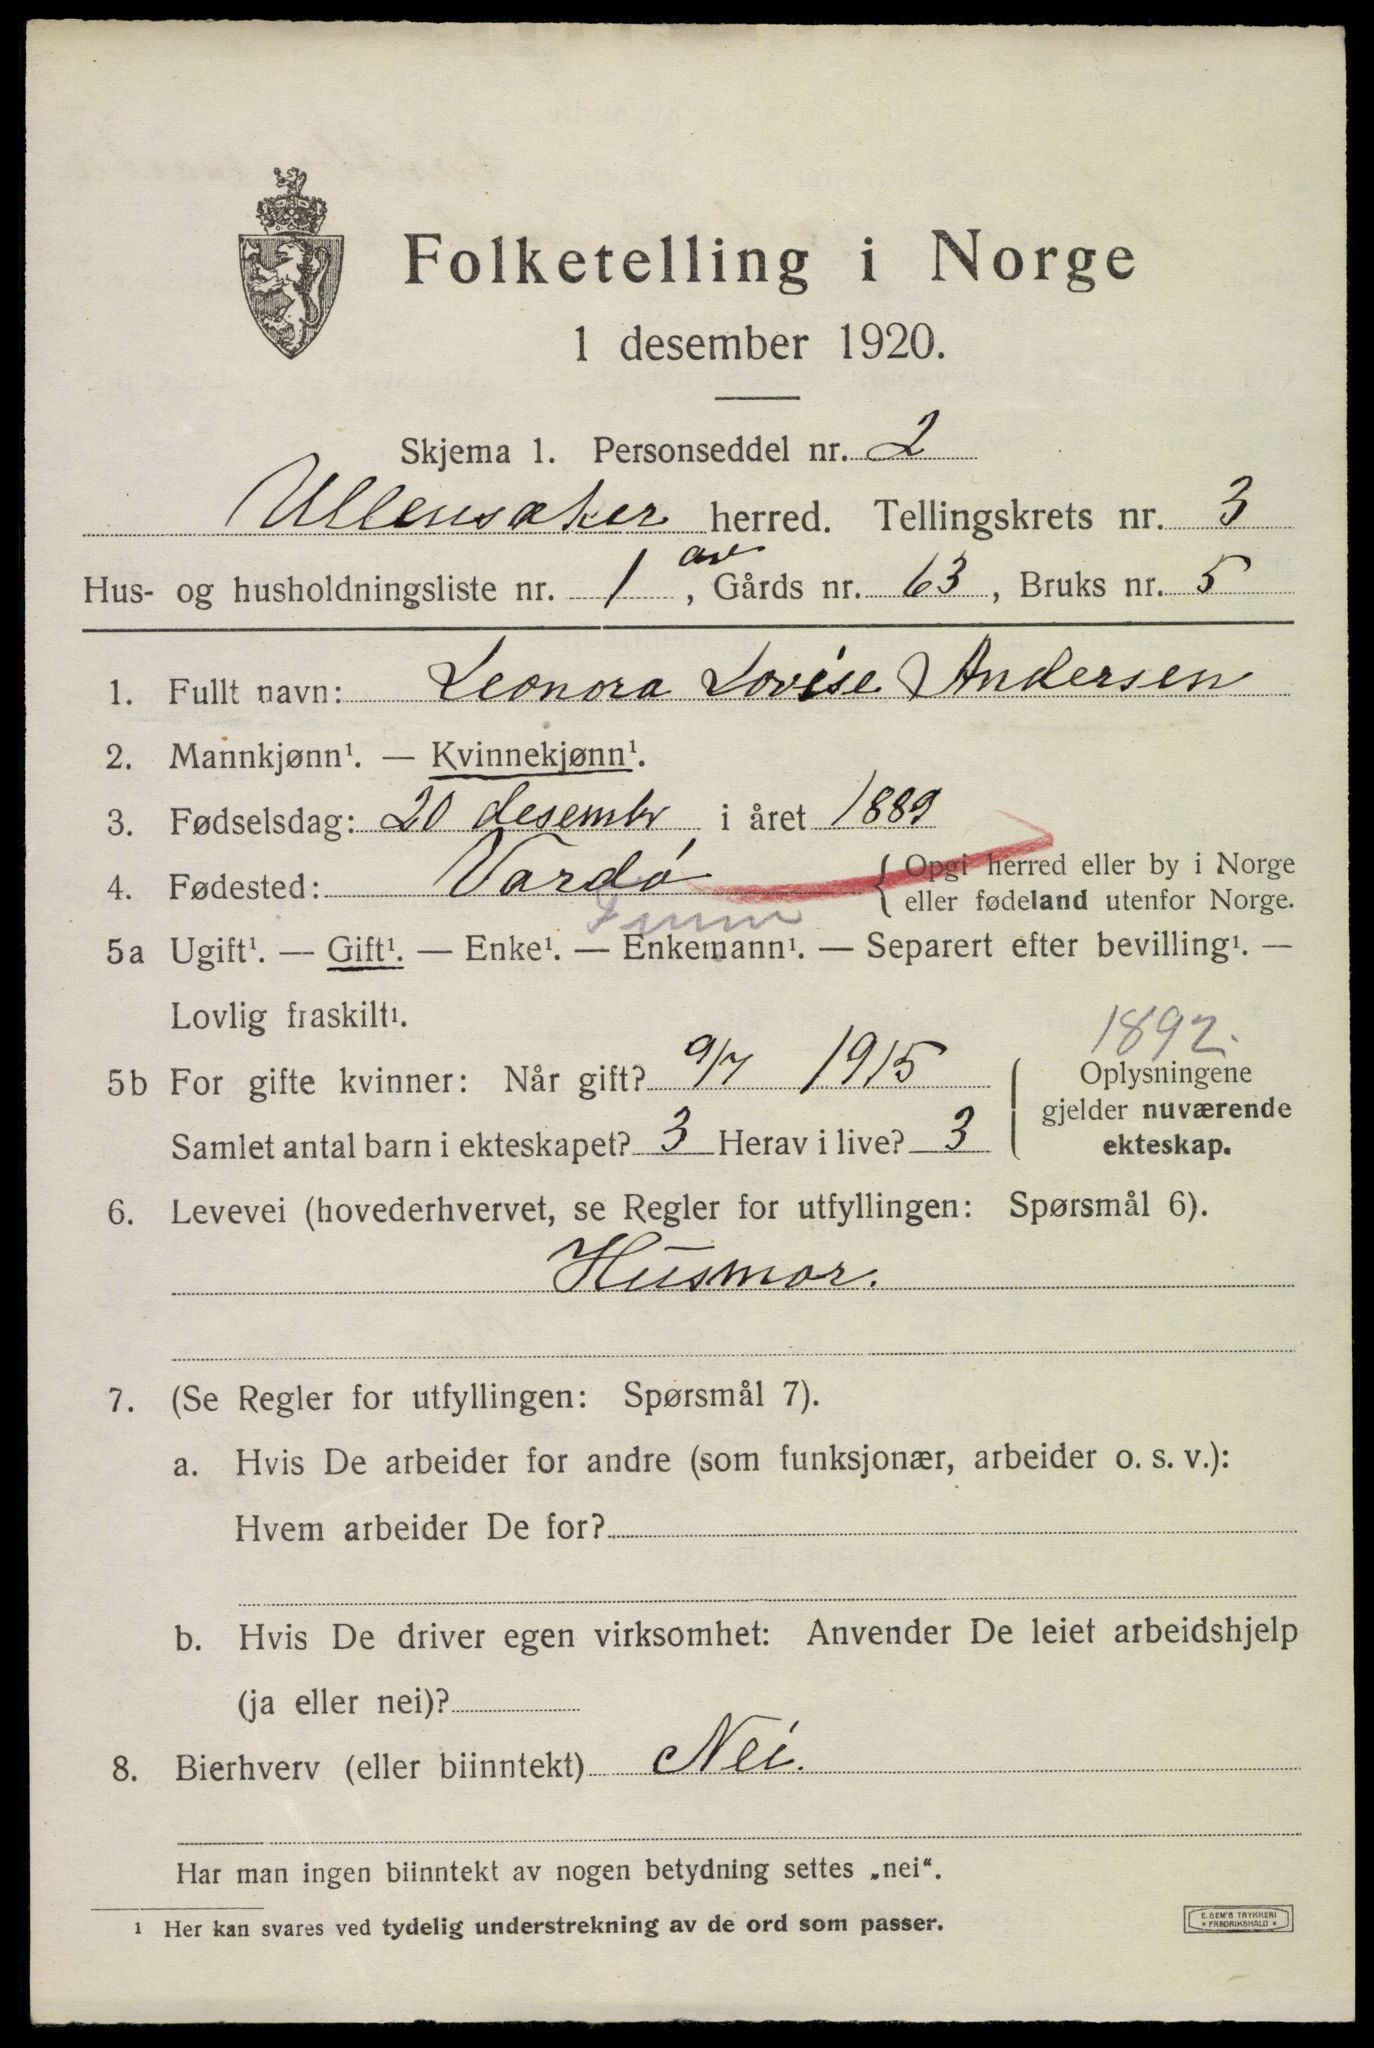 Folketelling i Norge
1 desember 1920.
Skjema 1. Personseddel nr. 2
Ullensaker herred. Tellingskrets nr. 3
Hus- og husholdningsliste nr. 1 av, Gårds nr. 63, Bruks nr. 5
1. Fullt navn: Leonora Lovise Andersen
2. Mannkjønn¹. — Kvinnekjønn¹.
3. Fødselsdag: 20 desembr i året 1889
4. Fødested: Vardø { Opgi herred eller by i Norge
eller fødeland utenfor Norge.
Finm
5a Ugift¹. — Gift¹. — Enke¹. — Enkemann¹. — Separert efter bevilling¹. —
Lovlig fraskilt¹.
1892.
5b For gifte kvinner: Når gift? 9/7 1915 { Oplysningene
gjelder nuværende
Samlet antal barn i ekteskapet? 3 Herav i live? 3
ekteskap.
6. Levevei (hovederhvervet, se Regler for utfyllingen: Spørsmål 6).
Husmor.
7. (Se Regler for utfyllingen: Spørsmål 7).
a. Hvis De arbeider for andre (som funksjonær, arbeider o. s. v.):
Hvem arbeider De for?
b. Hvis De driver egen virksomhet: Anvender De leiet arbeidshjelp
(ja eller nei)?
8. Bierhverv (eller biinntekt) Nei.
Har man ingen biinntekt av nogen betydning settes „nei“.
¹ Her kan svares ved tydelig understrekning av de ord som passer.
E. SEM'S TRYKKERI
* FREDRIKSHALD *